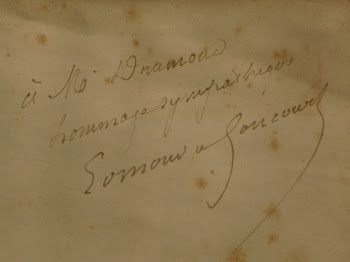 à Mr Drumont
hommage sympathique
Edmond de Goncourt